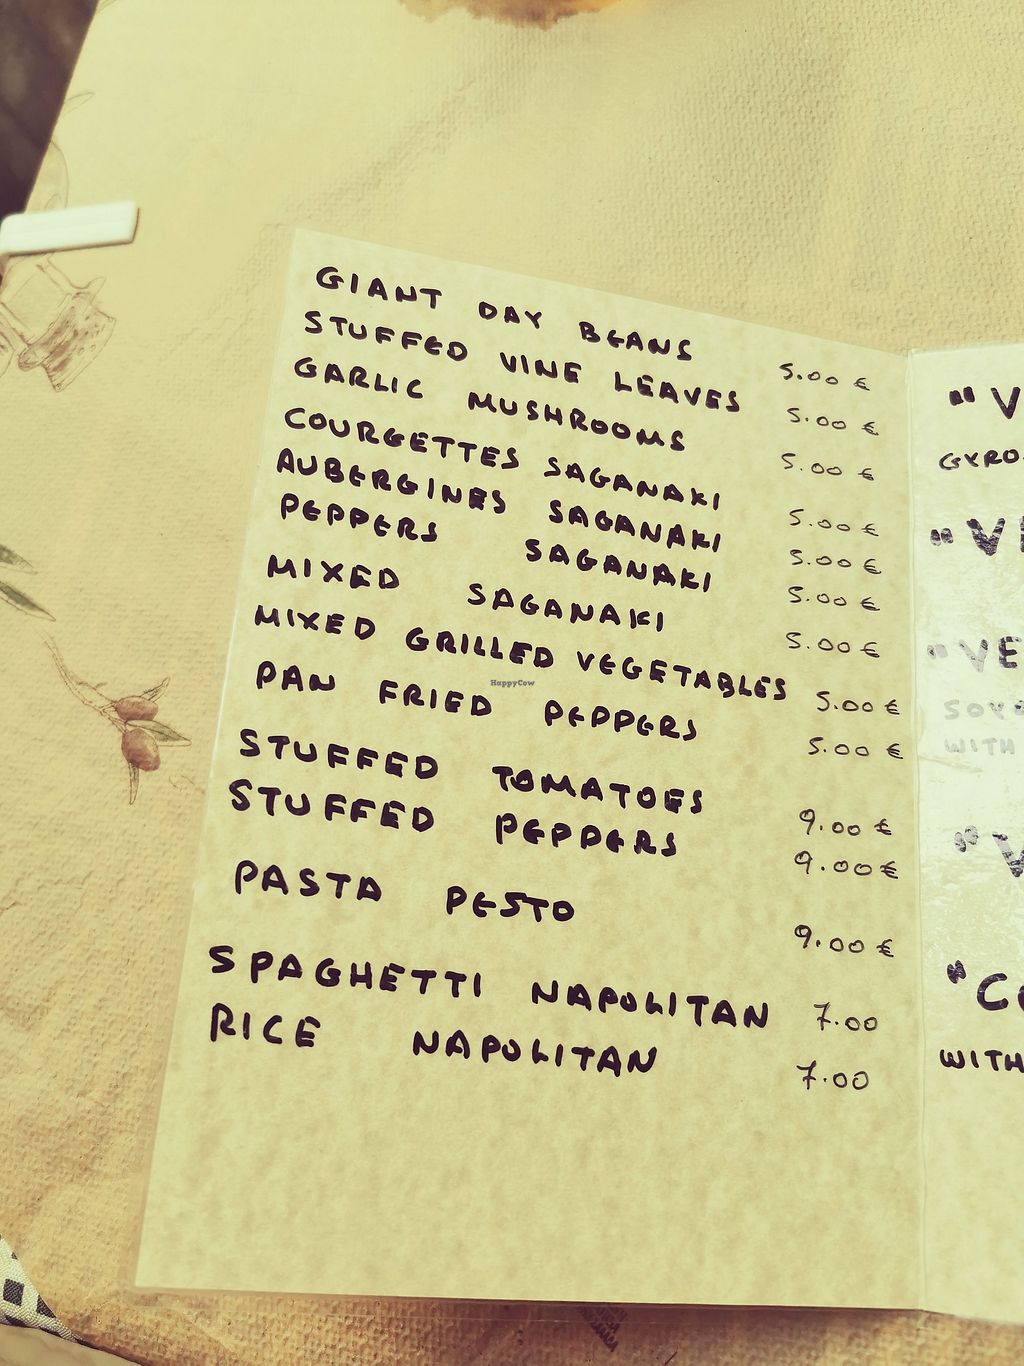 GIANT DAY BEANS 5.00 €
STUFFED VINE LEAVES 5.00 €
GARLIC MUSHROOMS 5.00 €
COURGETTES SAGANAKI 5.00 €
AUBERGINES SAGANAKI 5.00 €
PEPPERS SAGANAKI 5.00 €
MIXED SAGANAKI 5.00 €
MIXED GRILLED VEGETABLES 5.00 €
PAN FRIED PEPPERS 5.00 €
STUFFED TOMATOES 9.00 €
STUFFED PEPPERS 9.00 €
PASTA PESTO 9.00 €
SPAGHETTI NAPOLITAN 7.00
RICE NAPOLITAN 7.00
HappyCow
"V
GYRO
"VE
"VE
SOYA
WITH
"V
"C
WITH